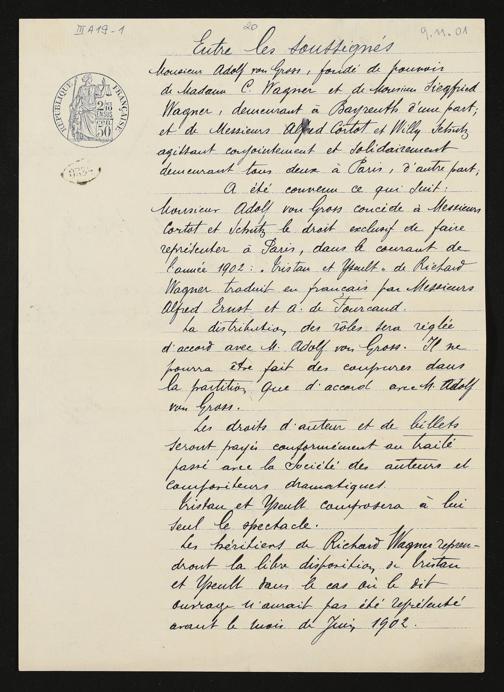 III A 19-1
20
9.11.01
Entre les soussignés
RÉPUBLIQUE FRANÇAISE
50
Monsieur Adolf von Gross, fondé de pouvoir
de Madame C. Wagner et de Monsieur Siegfried
Wagner, demeurant à Bayreuth d'une part;
et de Messieurs Alfred Cortot et Willy Schütz
agissant conjointement et solidairement
demeurant tous deux à Paris, d'autre part;
A été convenu ce qui suit:
Monsieur Adolf von Gross concède à Messieurs
Cortot et Schütz le droit exclusif de faire
représenter à Paris, dans le courant de
l'année 1902: "Tristan et Yseult" de Richard
Wagner traduit en français par Messieurs
Alfred Ernst et A. de Fourcaud.
La distribution des rôles sera réglée
d'accord avec M. Adolf von Gross. Il ne
pourra être fait des coupures dans
la partition que d'accord avec M. Adolf
von Gross.
Les droits d'auteur et de billets
seront payés conformément au traité
passé avec la Société des auteurs et
compositeurs dramatiques.
Tristan et Yseult composera à lui
seul le spectacle.
Les héritiers de Richard Wagner repren-
dront la libre disposition de Tristan
et Yseult dans le cas où le dit
ouvrage n'aurait pas été représenté
avant le mois de Juin 1902.